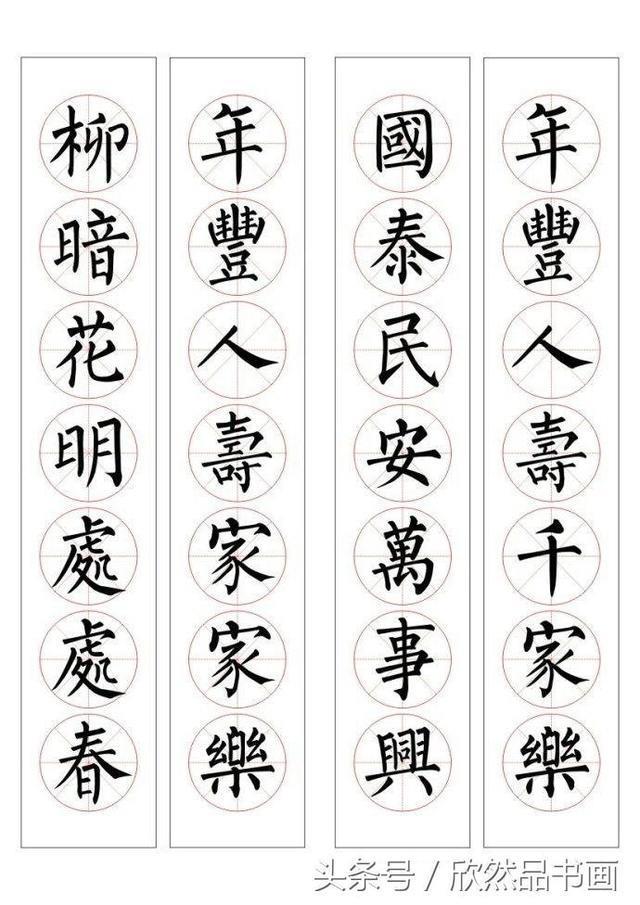 年豐人壽千家樂
國泰民安萬事興
年豐人壽家家樂
柳暗花明處處春
头条号 / 欣然品书画